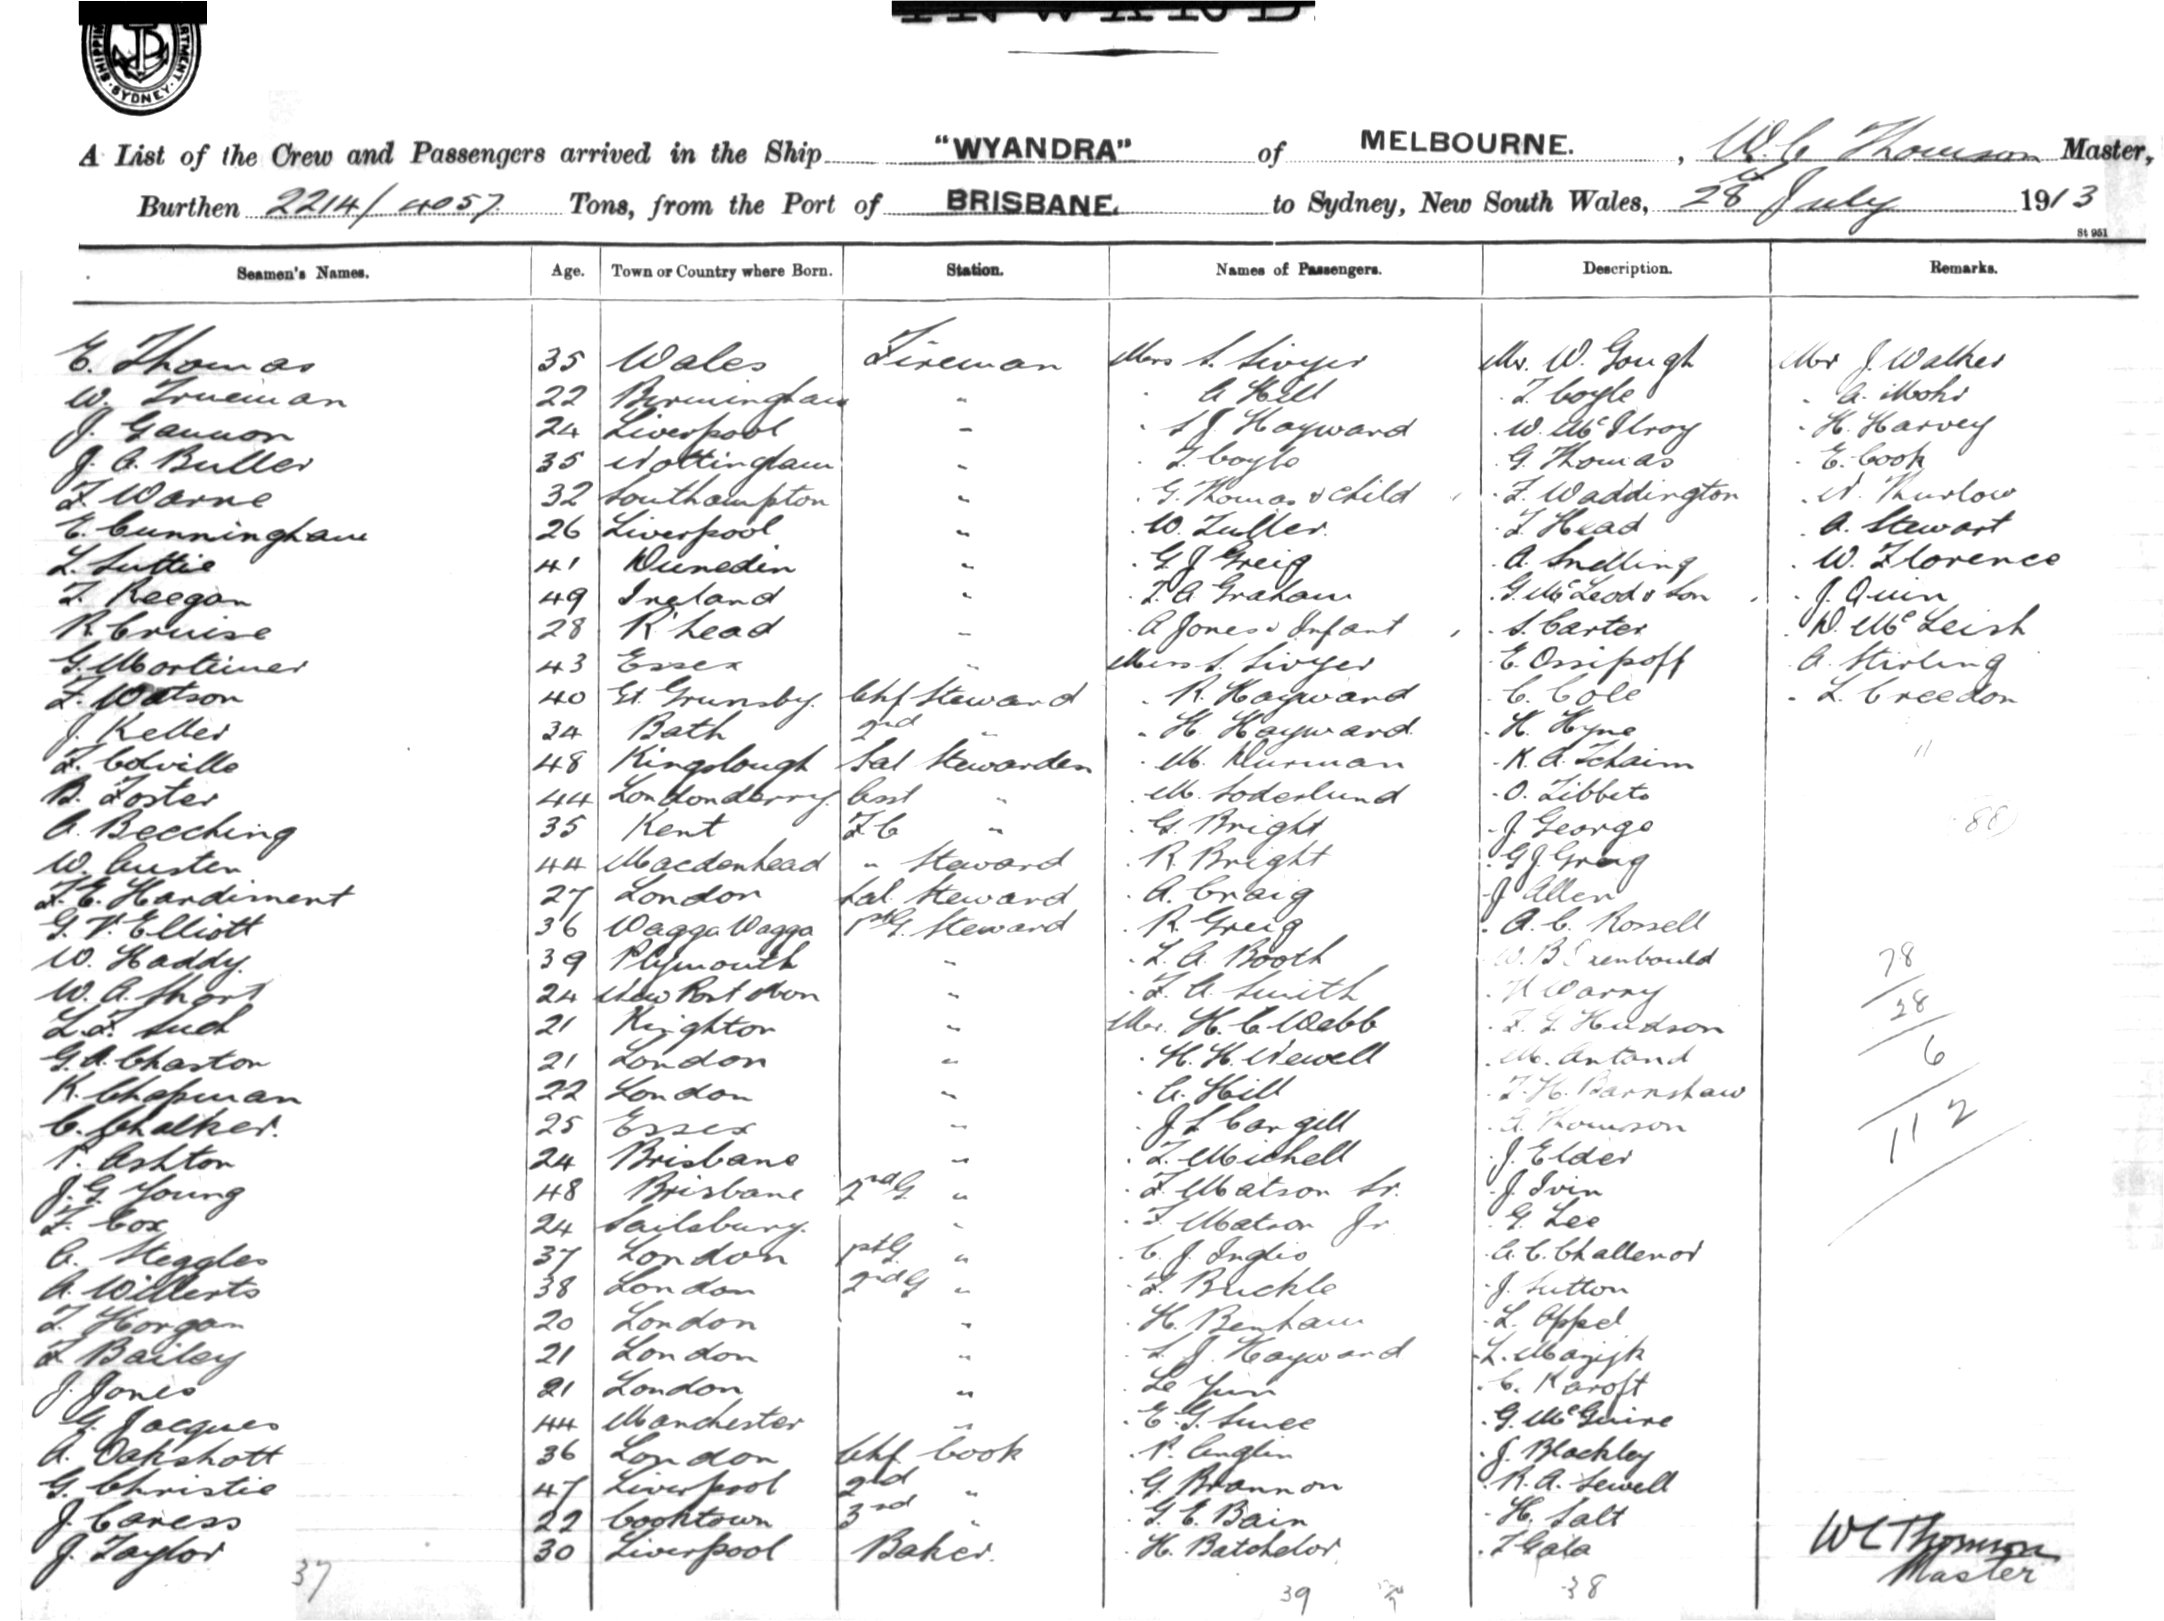 SYDNEY
A List of the Crew and Passengers arrived in the Ship "WYANDRA" of MELBOURNE. , W. C Thomson Master,
Burthen 2214/4057 Tons, from the Port of BRISBANE. to Sydney, New South Wales, 28th July 1913
St 951
Seamen's Names. Age. Town or Country where Born. Station. Names of Passengers. Description. Remarks.
E. Thomas 35 Wales Fireman Mrs S. Sivyer Mr. W. Gough Mr J. Walker
W. Trueman 22 Birmingham " A Hill F. Coyle A. Mohr
J. Gannon 24 Liverpool " S J Hayward W. McIlroy H. Harvey
J. A. Buller 35 Nottingham " F. Coyle G. Thomas E. Cook
F. Warne 32 Southampton " G. Thomas & child F. Waddington N. Thurlow
E. Cunningham 26 Liverpool " W. Fuller. F. Head A. Stewart
L. Suttie 41 Dunedin " G. J Greig A. Snelling W. Florence
F. Keegan 49 Ireland " F. A. Graham G. McLeod & Son J. Quin
R. Cruise 28 R'head " A Jones & Infant S. Carter D. McLeish
G. Mortimer 43 Essex " Miss S. Sivyer E. Ossipoff A. Stirling
F. Watson 40 Gt. Grimsby. Chf Steward R. Hayward C. Cole L. Creedon
J. Keller 34 Bath 2nd " H. Hayward. H. Hyne
F. Colville 48 Kingslough Sal Stewardess M. Durman K. A. Schaim 11
B. Foster 44 Londonderry. Asst " M. Soderlund O. Tibbets
A. Beeching 35 Kent F. C " G. Bright J George 88
W. Austen 44 Maedenhead " Steward R. Bright G J Greig
F. E. Hardiment 27 London Sal. Steward A. Craig J Allen
G. V. Elliott 36 Wagga Wagga 1st G. Steward R. Greig A. C. Rossell
W. Haddy. 39 Plymouth " L. A. Booth W. B
W. A. Short 24 New Port Mon " F. A. Smith Warry 78
L. F. Such 21 Knighton " Mr. H. C Webb F. G. Hudson 28
G. A. Chaston 21 London " H. H. Newell M. Antand 6
K. Chapman 22 London " A. Hill F. H. Barnshaw
C. Chalker. 25 Essex " J S Cargill A. Thomson 112
P. Ashton 24 Brisbane " F. Michell J. Elder
J. G. Young 48 Brisbane 2nd G " F. Matson Sr. J. Ivin
F. Cox 24 Sailsbury. " F. Matson Jr G. Lee
A. Steggles 37 London 1st G. " C. J. Inglis A. C. Challenor
A. Willerts 38 London 2nd G " F. Buckle J. Sutton
F. Horgan 20 London " H. Benham L. Appel
F Bailey 21 London " S. J. Hayward
J. Jones 21 London " Le Yun C. Karoft
G. Jacques 44 Manchester " E. G. Smee G. McGuire
A. Oakshott 36 London Chf. Cook P. Anglin J. Blackley
G. Christie 47 Liverpool 2nd " G. Brannon R. A. Sewell
J. Caress 22 Cooktown 3rd " G. E. Bain H. Salt
J. Taylor 30 Liverpool Baker. H. Batchelor F Gala
WC Thomson
Master
37 39 38